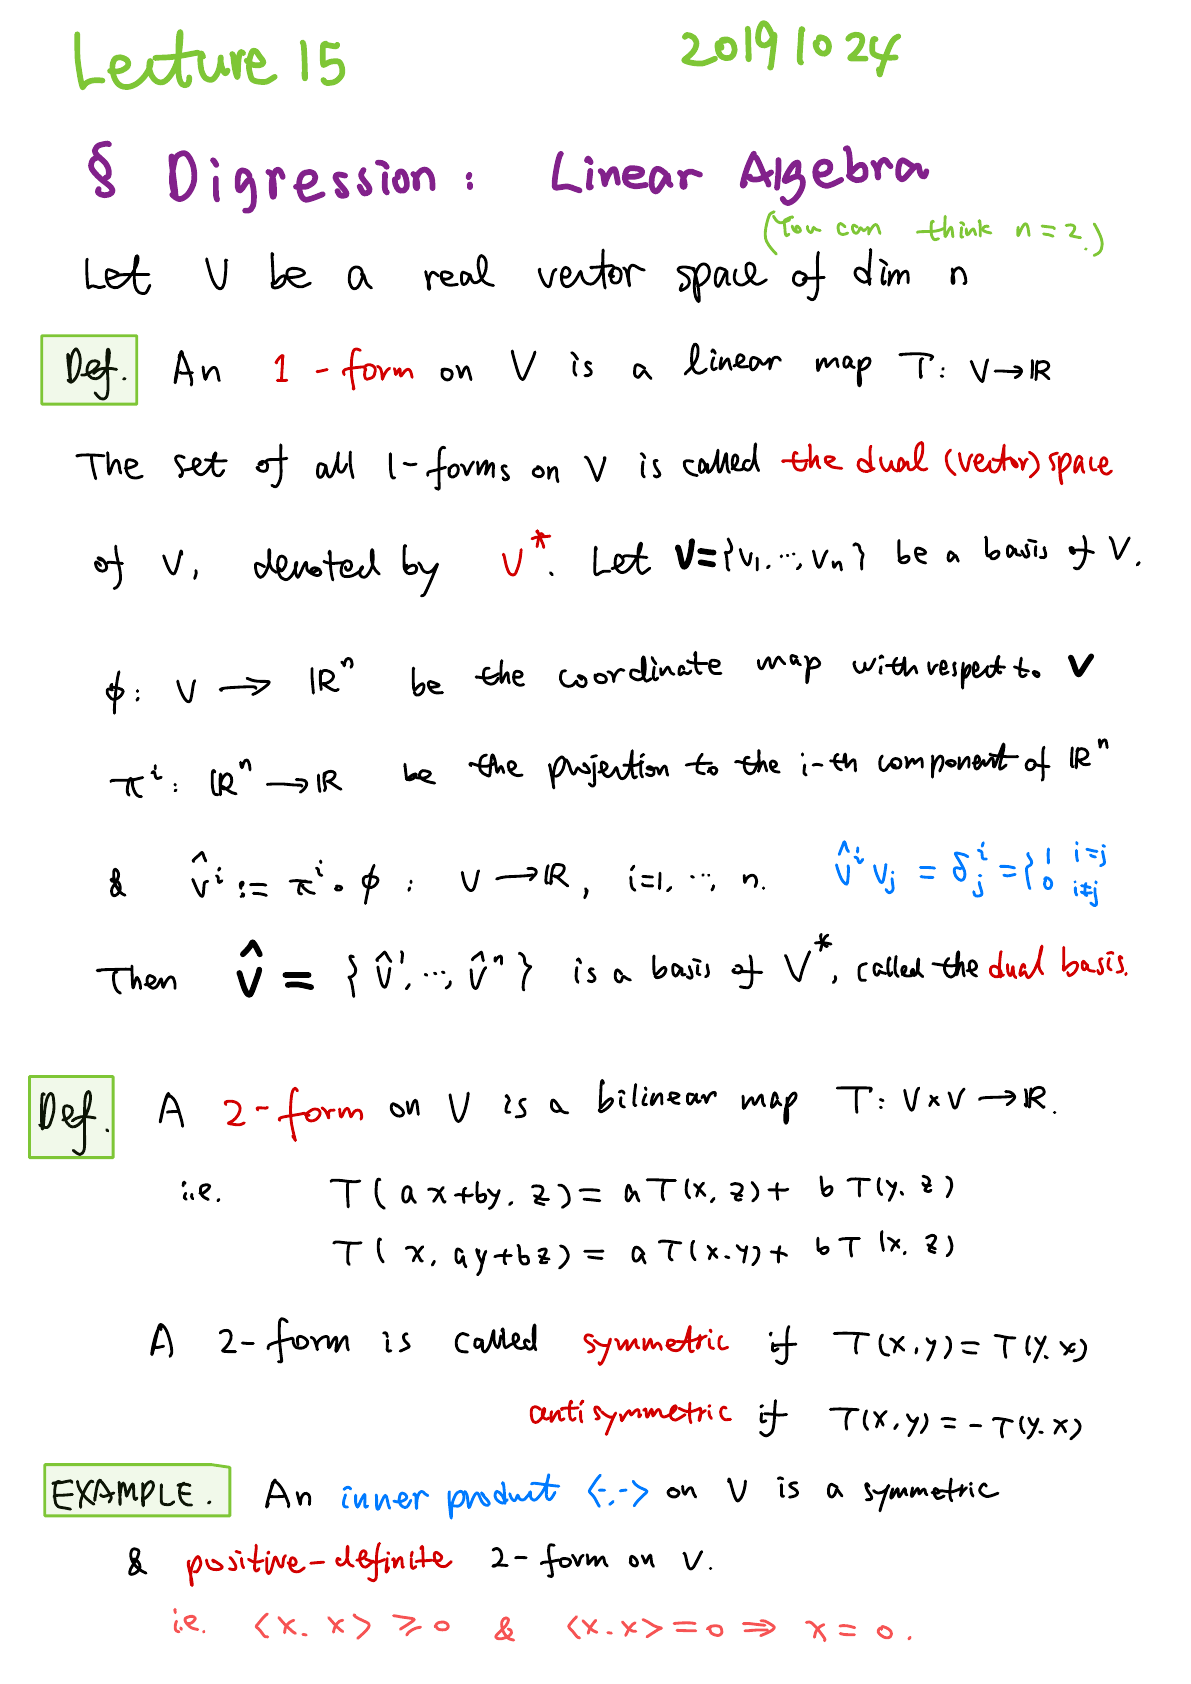 Lecture 15 2019 10 24
§ Digression: Linear Algebra
(You can think n=2.)
Let V be a real vector space of dim n
Def. An 1-form on V is a linear map T: V→ℝ
The set of all 1-forms on V is called the dual (vector) space
of V, denoted by V*. Let 𝐯={v₁, ⋯, vₙ} be a basis of V.
ϕ: V → ℝⁿ be the coordinate map with respect to 𝐯
πⁱ: ℝⁿ → ℝ be the projection to the i-th component of ℝⁿ
& v̂ⁱ := πⁱ∘ϕ : V → ℝ, i=1, ⋯, n. v̂ⁱ vⱼ = δⁱⱼ = { 1 i=j
0 i≠j
Then 𝐯̂ = {v̂¹, ⋯, v̂ⁿ} is a basis of V*, called the dual basis.
Def. A 2-form on V is a bilinear map T: V×V → ℝ.
i.e. T(ax+by, z) = aT(x, z) + bT(y, z)
T(x, ay+bz) = aT(x, y) + bT(x, z)
A 2-form is called symmetric if T(x,y) = T(y, x)
antisymmetric if T(x,y) = -T(y, x)
EXAMPLE. An inner product <-,-> on V is a symmetric
& positive-definite 2-form on V.
i.e. <x, x> ⩾ 0 & <x, x> = 0 ⇒ x = 0.